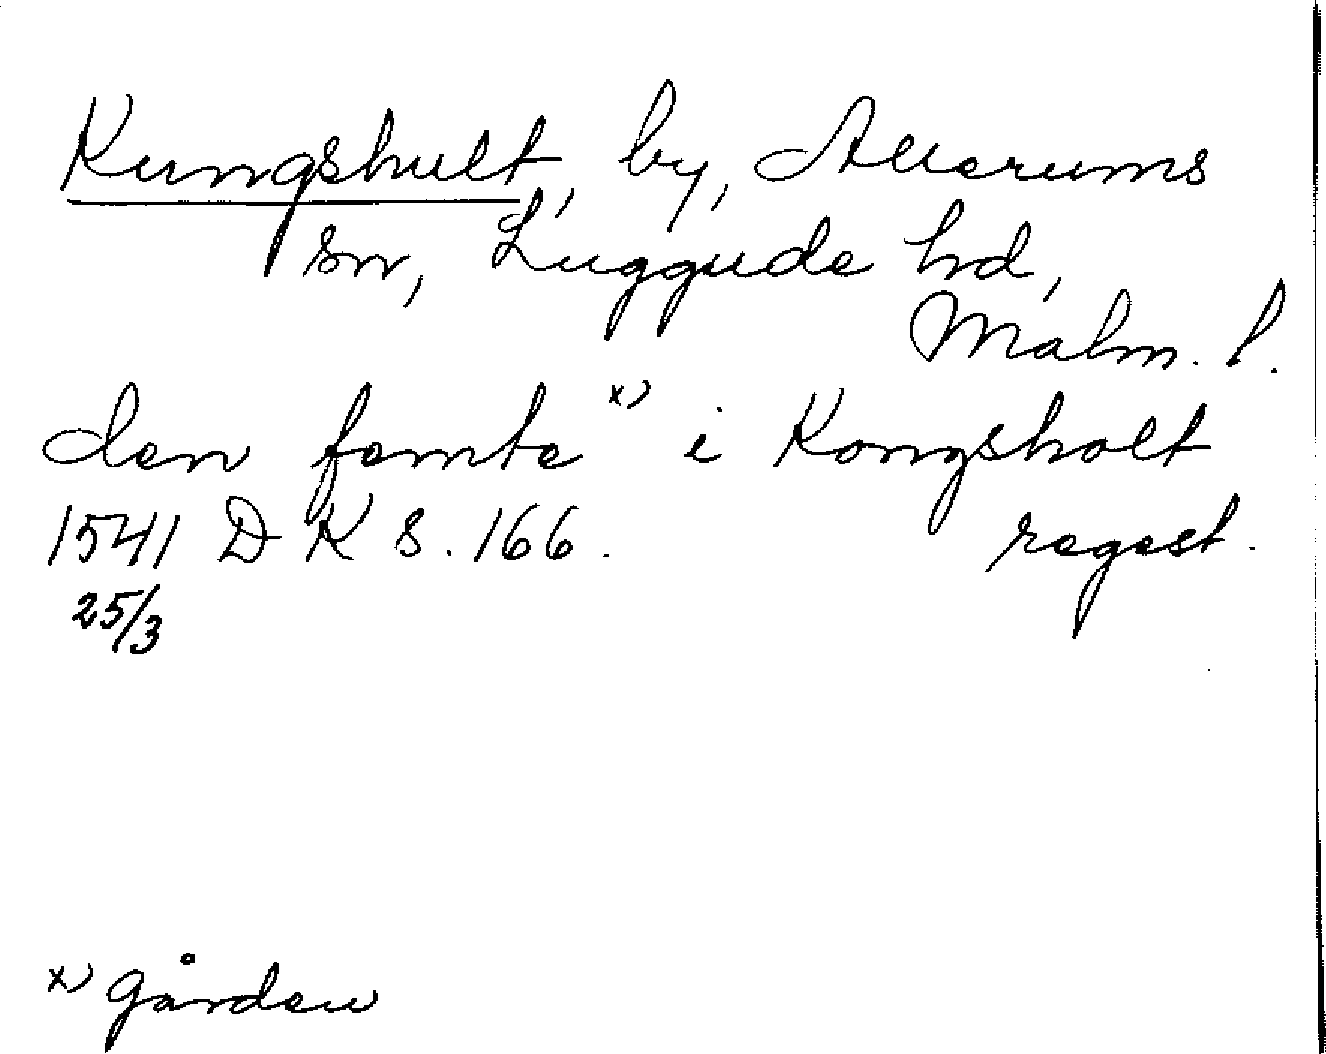 Kungshult, by, Allerums
sn, Luggude hd,
Malm. l.
den femte x) i Kongsholt
1541 DK S. 166. regest.
25/3
x) gården